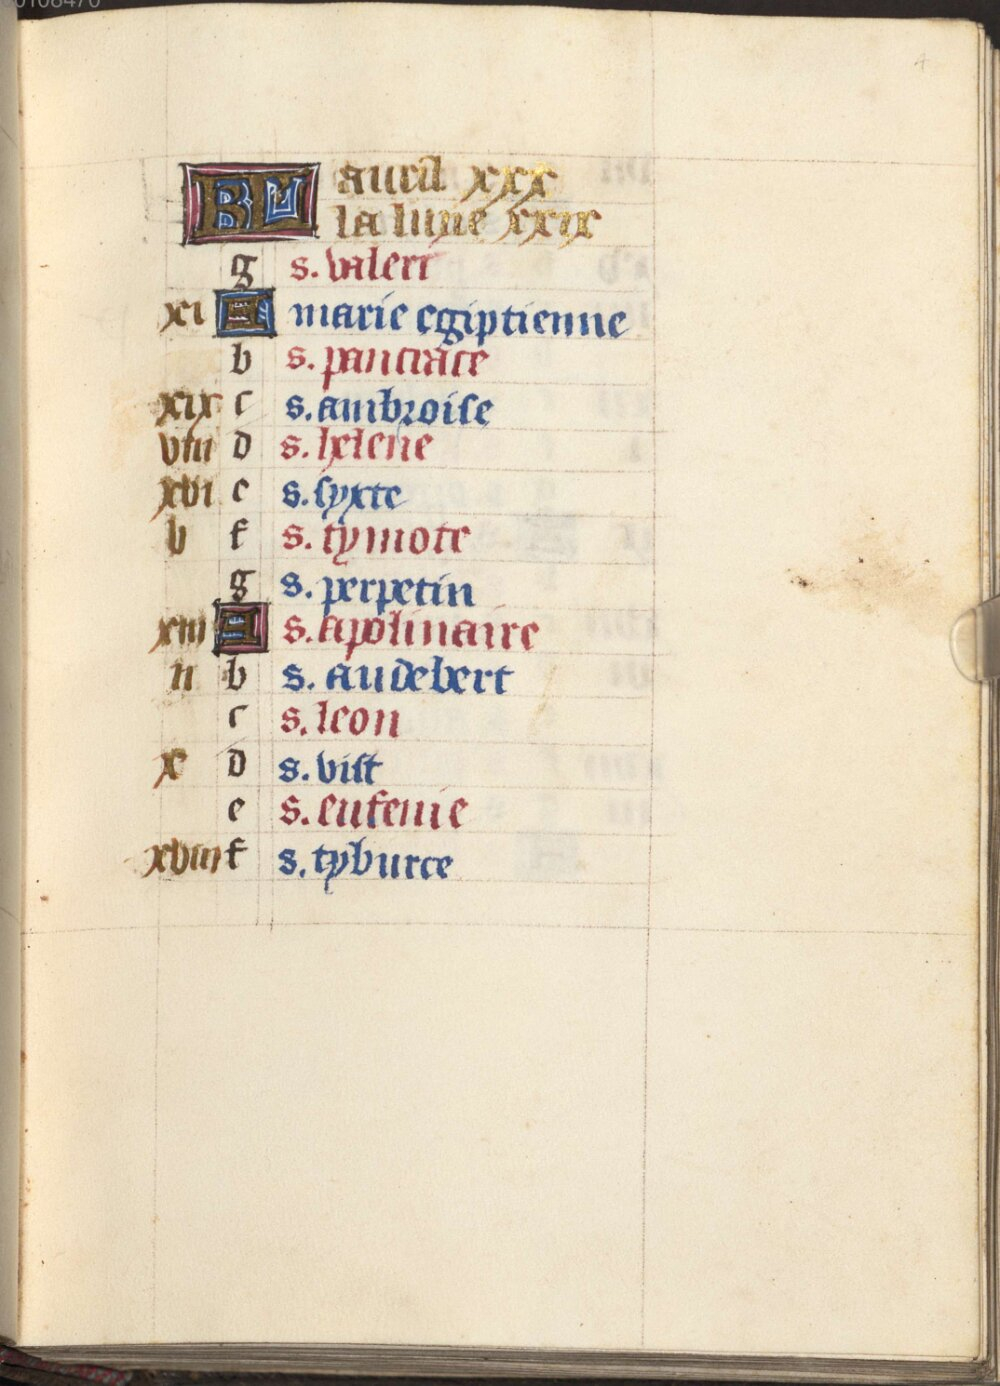 00108470
4
KL auril xxx
la lune xxix
g s. valeri
xi A marie egiptienne
b s. pancrace
xix c s. ambroise
viii d s. helene
xvi e s. syxte
v f s. tymote
g s. perpetin
xiii A s. apolinaire
ii b s. audebert
c s. leon
x d s. vist
e s. eufemie
xviii f s. tyburce